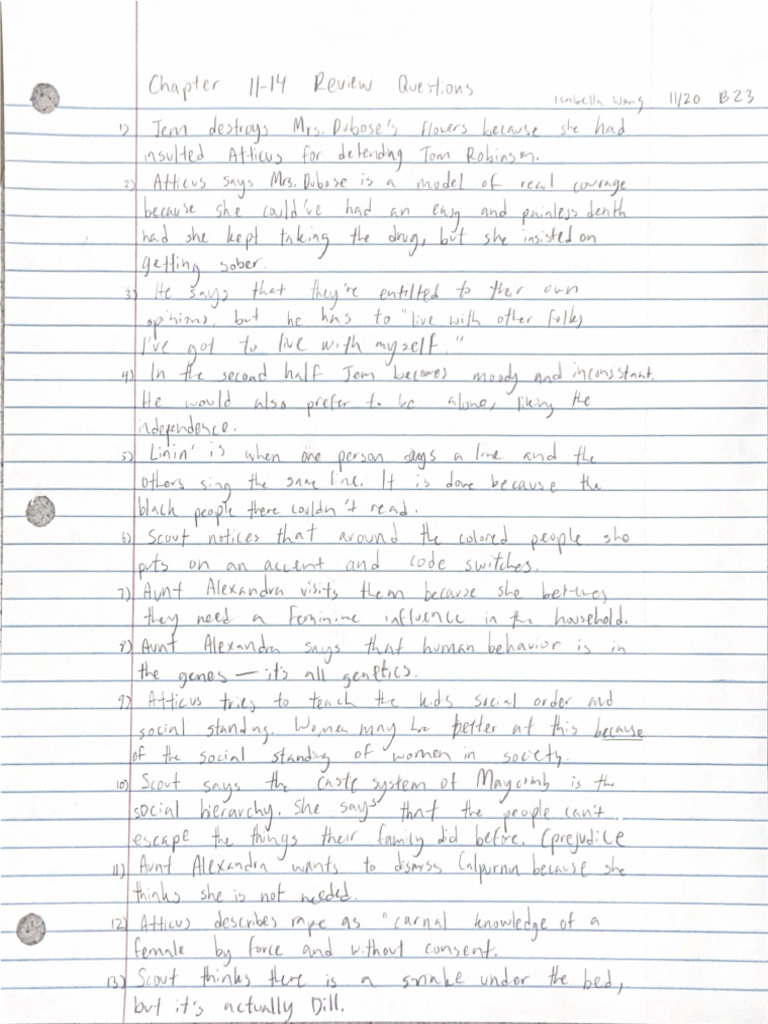 Chapter 11-14 Review Questions
Isabella Wang 11/20 B23
1) Jem destroys Mrs. Dubose's flowers because she had
insulted Atticus for defending Tom Robinson.
2) Atticus says Mrs. Dubose is a model of real courage
because she could've had an easy and painless death
had she kept taking the drug, but she insisted on
getting sober.
3) He says that they're entilted to their own
opinions, but he has to "live with other folks
I've got to live with myself."
4) In the second half Jem becomes moody and inconsistant.
He would also prefer to be alone, liking the
independence.
5) Linin' is when one person says a line and the
others sing the same line. It is done because the
black people there couldn't read.
6) Scout notices that around the colored people she
puts on an accent and code switches.
7) Aunt Alexandra visits them because she believes
they need a feminine influence in the household.
8) Aunt Alexandra says that human behavior is in
the genes — it's all genetics.
9) Atticus tries to teach the kids social order and
social standing. Women may be better at this because
of the social standing of women in society.
10) Scout says the caste system of Maycomb is the
social hierarchy. She says that the people can't
escape the things their family did before. (prejudice
11) Aunt Alexandra wants to dismiss Calpurnia because she
thinks she is not needed.
12) Atticus describes rape as "carnal knowledge of a
female by force and without consent.
13) Scout thinks there is a snake under the bed,
but it's actually Dill.